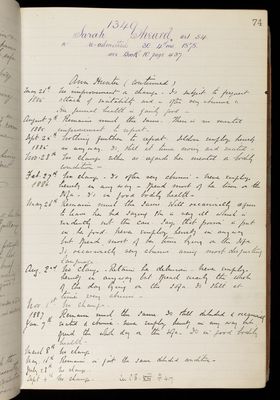 74
1349
Sarah Sheard, aet 54
re-admitted 30th Decr 1875.
see Book 10 page 437
Ann Hunter (continued)
May 21st No improvement or change. Is subject to frequent
1885 attacks of excitability and is often very abusive &
General health is fairly good
August 7th Remains much the same. There is no mental
1885 improvement to report.
Sept 24th Nothing further to report. Seldom employs herself
1885 in any way. Is, still at times noisy and excited.
Nov 28th No change either as regards her mental or bodily
condition.
Feb 27th No change. Is often very abusive. Never employs
1886 herself in any way. Spends most of her time on the
sofa. Is in good bodily health.
May 26th Remains much the same. Will occasionally refuse
to leave her bed saying she is very ill which is
evidently not the case. Says that poison is put
in her food. Never employs herself in anyway
but spends most of her time lying on the sofa.
Is occasionally very abusive using most disgusting
language.
Aug. 2nd No change. Retains her delusions. Never employs
herself in anyway but spends nearly the whole
of the day lying on the sofa. Is still at
times very abusive.
Nov. 1st No change.
1887 Remains much the same. Is still deluded & occasionally
Jan. 7th excited & abusive. Never employs herself in any way but
spends the whole day on the sofa. Is in good bodily
health.
March 8th No change
May 16th Remains in just the same deluded condition.
July 28th No change.
Sept 4th No change.